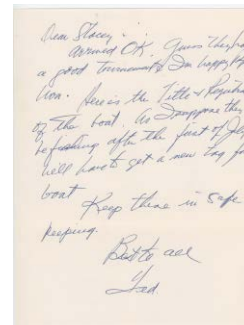 Dear Stacey -
arrived OK. Guess they had
a good tournament & I'm happy
won. Here is the Title &
of the boat. As I suppose they
be fishing after the first of
will have to get a new tag for
boat
Keep these in safe
keeping.
Best to all